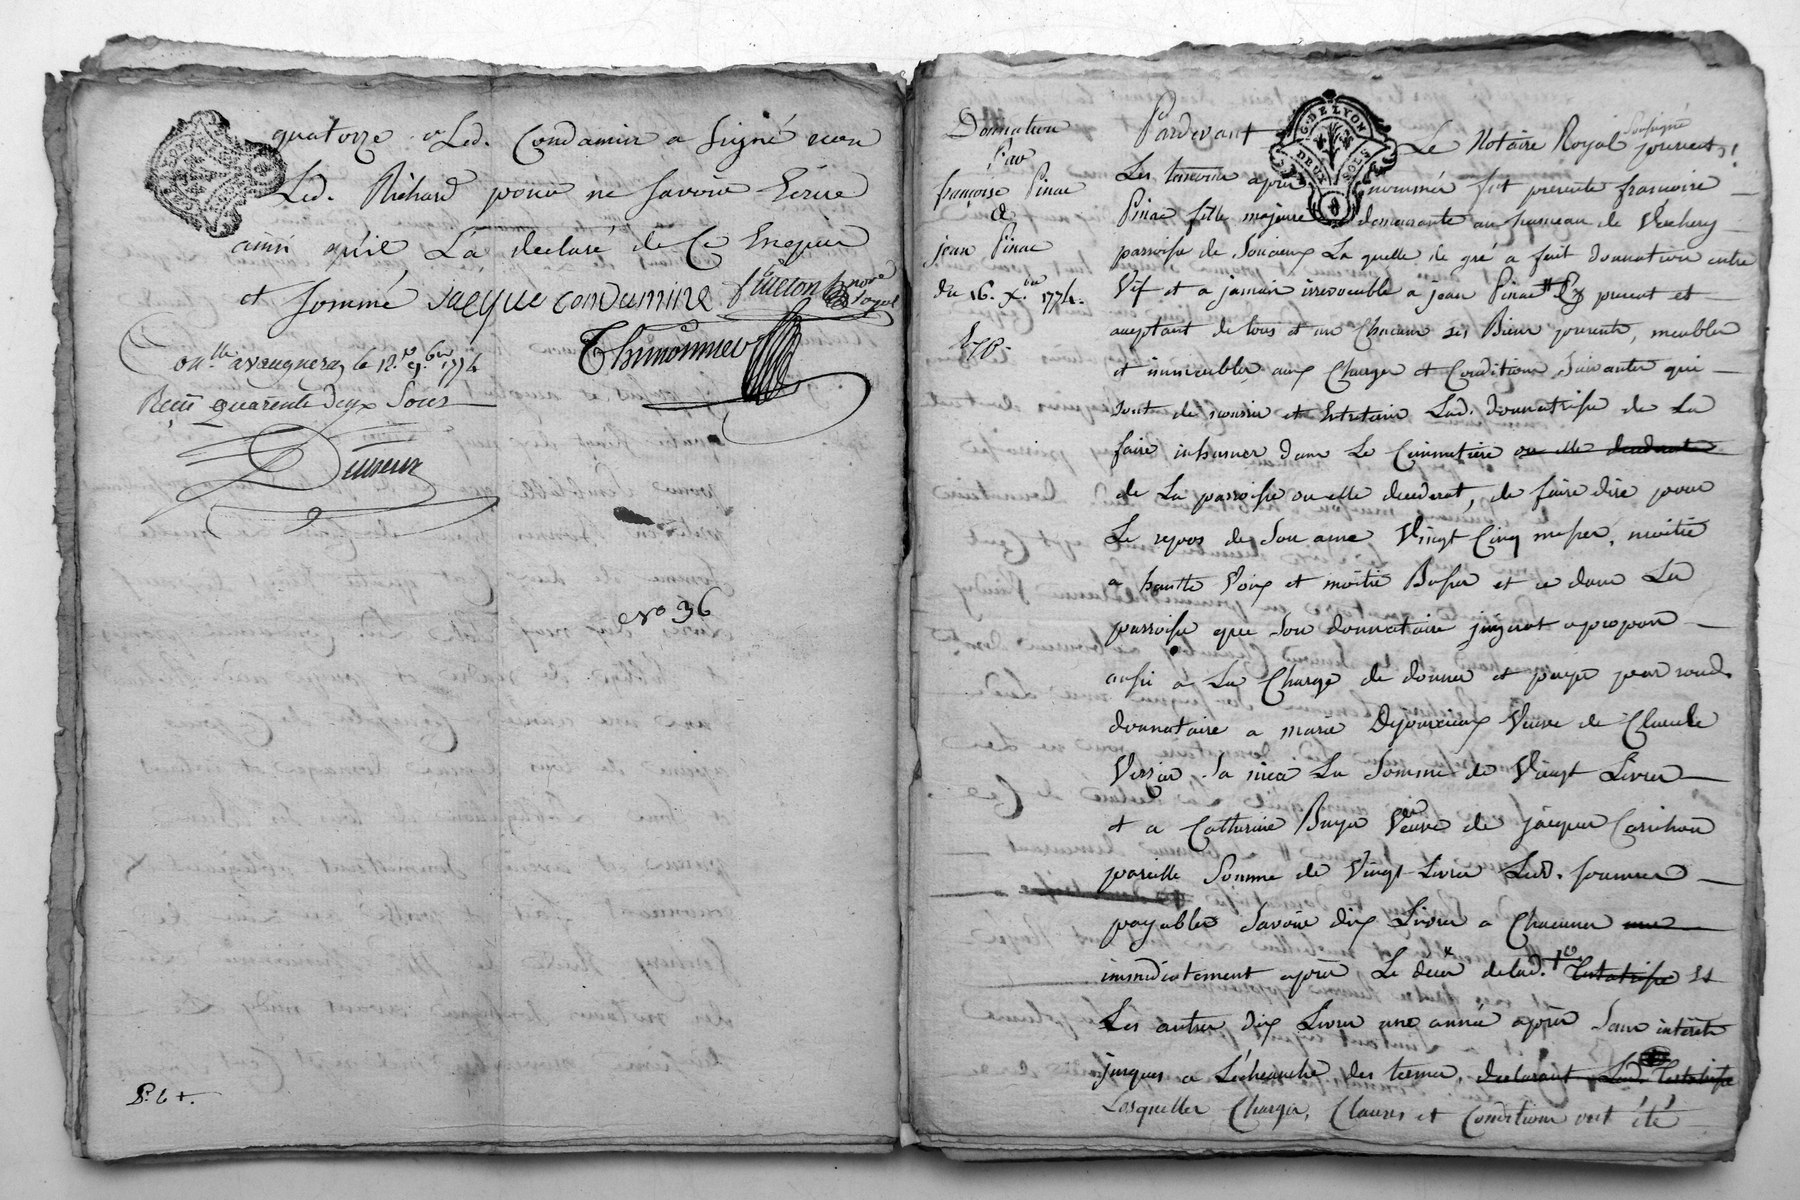 quatorze Led. Condamin a signé non
Led. Richard pour ne savoir Ecrire
ainsi qu'il La declaré de Ce Enquis
et sommé Jacque condumine
Conlle a vaugneray le 12e 9bre 1774
Reçu quarente deux sous
No 36
Donnation
par
françoise Pinac
a
jean Pinac
du 16. Xbre 1774.
G. DE LYON
DEUX SOLS
Pardevant Le Notaire Royal soussigné
Les temoins apres nommés fut presente françoise
Pinac fille majeure demeurante au hameau de
parroisse de Soucieux La quelle de gré a fait donnation entre
Vif et a jamais irrevocable a jean Pinac present et
aceptant de tous et un Chacun ses Biens presents, meubles
et immeubles aux Charges et Conditions suivantes qui
sont de nourrir et Entretenir Lad. donnatrisse de La
faire inhumer dans Le Cimmetière ou elle decederat
de La parroisse ou elle decederat, de faire dire pour
Le repos de Son ame Vingt Cinq messes, moitié
a hautte Voix et moitié Basse et ce dans La
parroisse que Son donnataire jugerat apropos
aussi a La Charge de donner et payer par
donnataire a marie Veuve de Claude
sa niece La Somme de Vingt Livres
et a Catherine Veuve de jacques
pareille Somme de Vingt Livres Lesd. sommes
payables Savoir dix Livres a Chacune une
immediatement après Le deces de lad. testatrisse et
Les autres dix Livres une année après sans interets
jusques a L'écheanche des termes, declarant Lad. testatrisse
Lesquelles Charges, Clauses et Conditions ont été